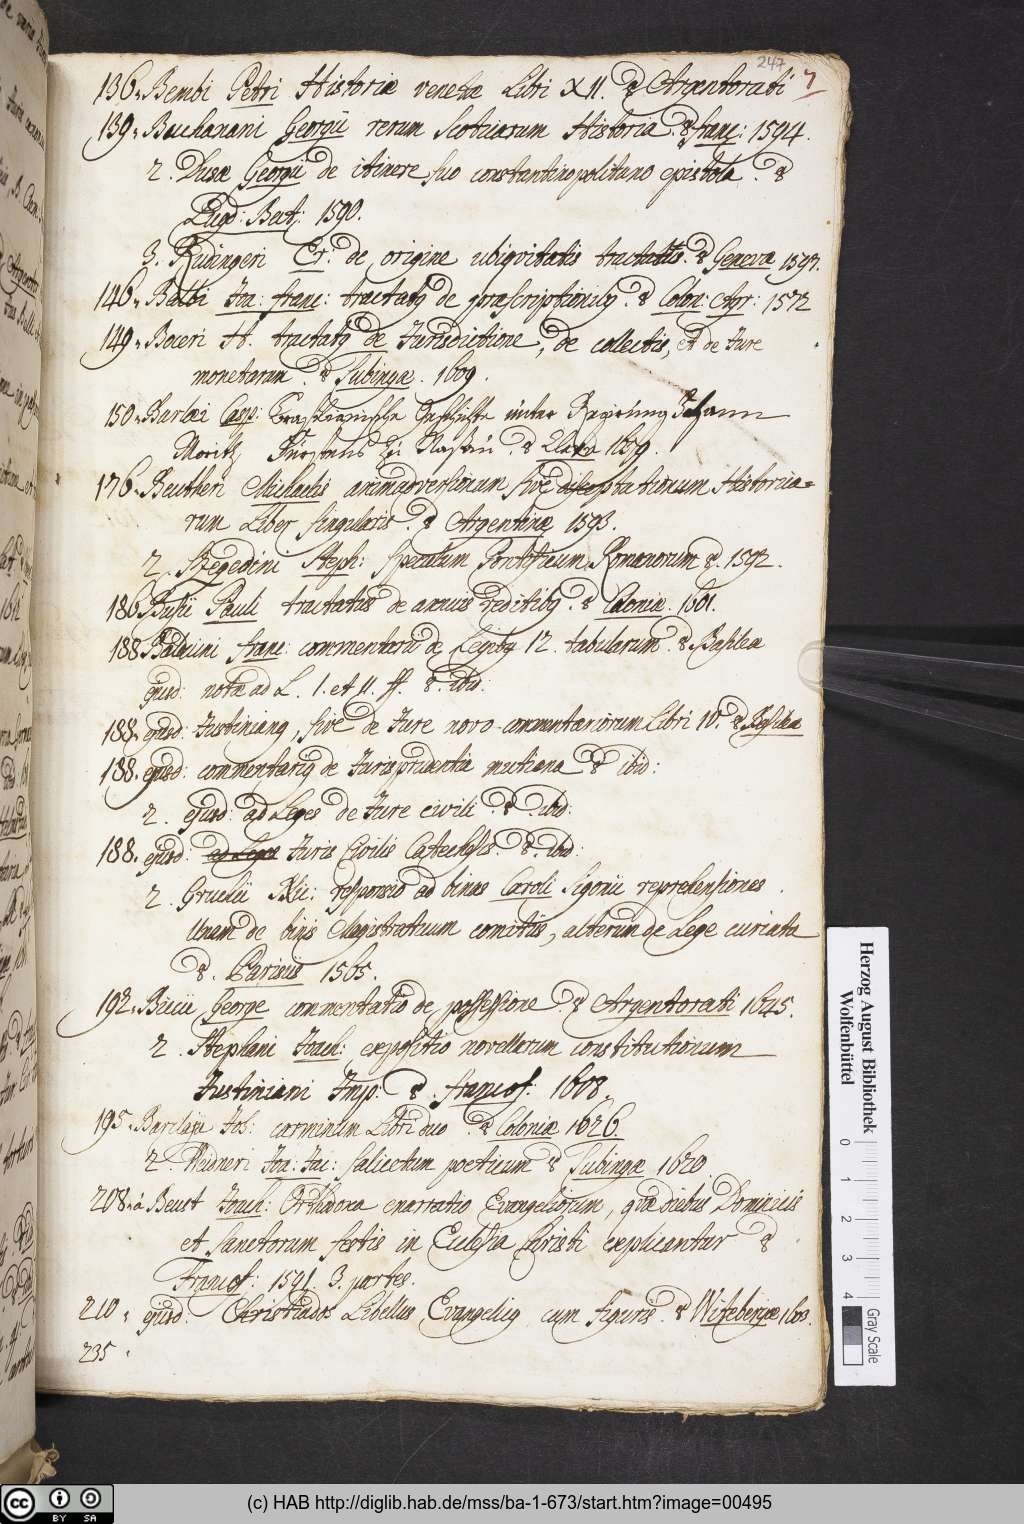 247
7
136. Bembi Petri Historiæ venetæ Libri XII. & Argentorati
139. Buchanani Georgii rerum Scoticarum Historia. & franc: 1594.
2. Dusæ Georgii de itinere suo constantinopolitano epistola. &
Lugd: Bat: 1590.
3. Rudingeri Er: de origine ubiqvitatis tractatus. & Genevæ 1597.
146. Balbi Joa: franc: tractatq de præscriptionibq. & Colon: Agr: 1572
149. Boceri H. tractatq de Jurisdictione, de collectis, et de Jure
monetarum. & Tubingæ. 1609.
150. Barlæi Casp: Brasilianische Geschichte unter Regierung Johann
Moritz Fürstens zu Nassau. & Cleve 1659.
176. Beutheri Michaelis animadversionum sive disceptationum Historica=
rum Liber singularis. & Argentinæ 1593.
2. Szegedini Steph: Speculum Pontificum Romanorum &. 1592.
186. Busii Pauli tractatus de annuis reditibq. & Coloniæ. 1601.
188 Balduini franc: commentarii de Legibq 12. tabularum. & Basilea
ejusd: notæ ad L. 1. et II. ff. &. ibid:
188. ejusd: Justinianq, sive de Jure novo commentariorum Libri IV. & Basilea
188. ejusd: commentariq de Jurisprudentia mutiana & ibid:
2. ejusd: ad Leges de Jure civili. &. ibid:
188. ejusd: ad Leges Juris Civilis Catechesis. &. ibid:
2. Gruchii Nic: responsio ad binas Caroli Sigonii reprehensiones.
Unam de binis Magistratuum comitiis, alteram de Lege curiata
&. Parisiis 1565.
192. Buccii George commentatio de possessione. & Argentorati 1645.
2. Stephani Joach: expositio novellarum constitutionum
Justiniani Imp: & francof: 1608.
195. Barclaji Joh: carminum Libri duo. & Coloniæ 1626.
2. Weidneri Joa: Jac: salictum poeticum & Tubingæ 1620.
208. à Beust Joach: Orthodoxa enarratio Evangeliorum, qvæ diebus Dominicis
et Sanctorum festis in Ecclesia Christi explicantur &
Francof: 1591. 3. partes.
210. ejusd: Christiados Libellus Evangelicq cum figuris. & Witebergæ 1600.
235.
Herzog August Bibliothek
Wolfenbüttel
0 1 2 3 4 Gray Scale
(c) HAB http://diglib.hab.de/mss/ba-1-673/start.htm?image=00495
cc BY SA